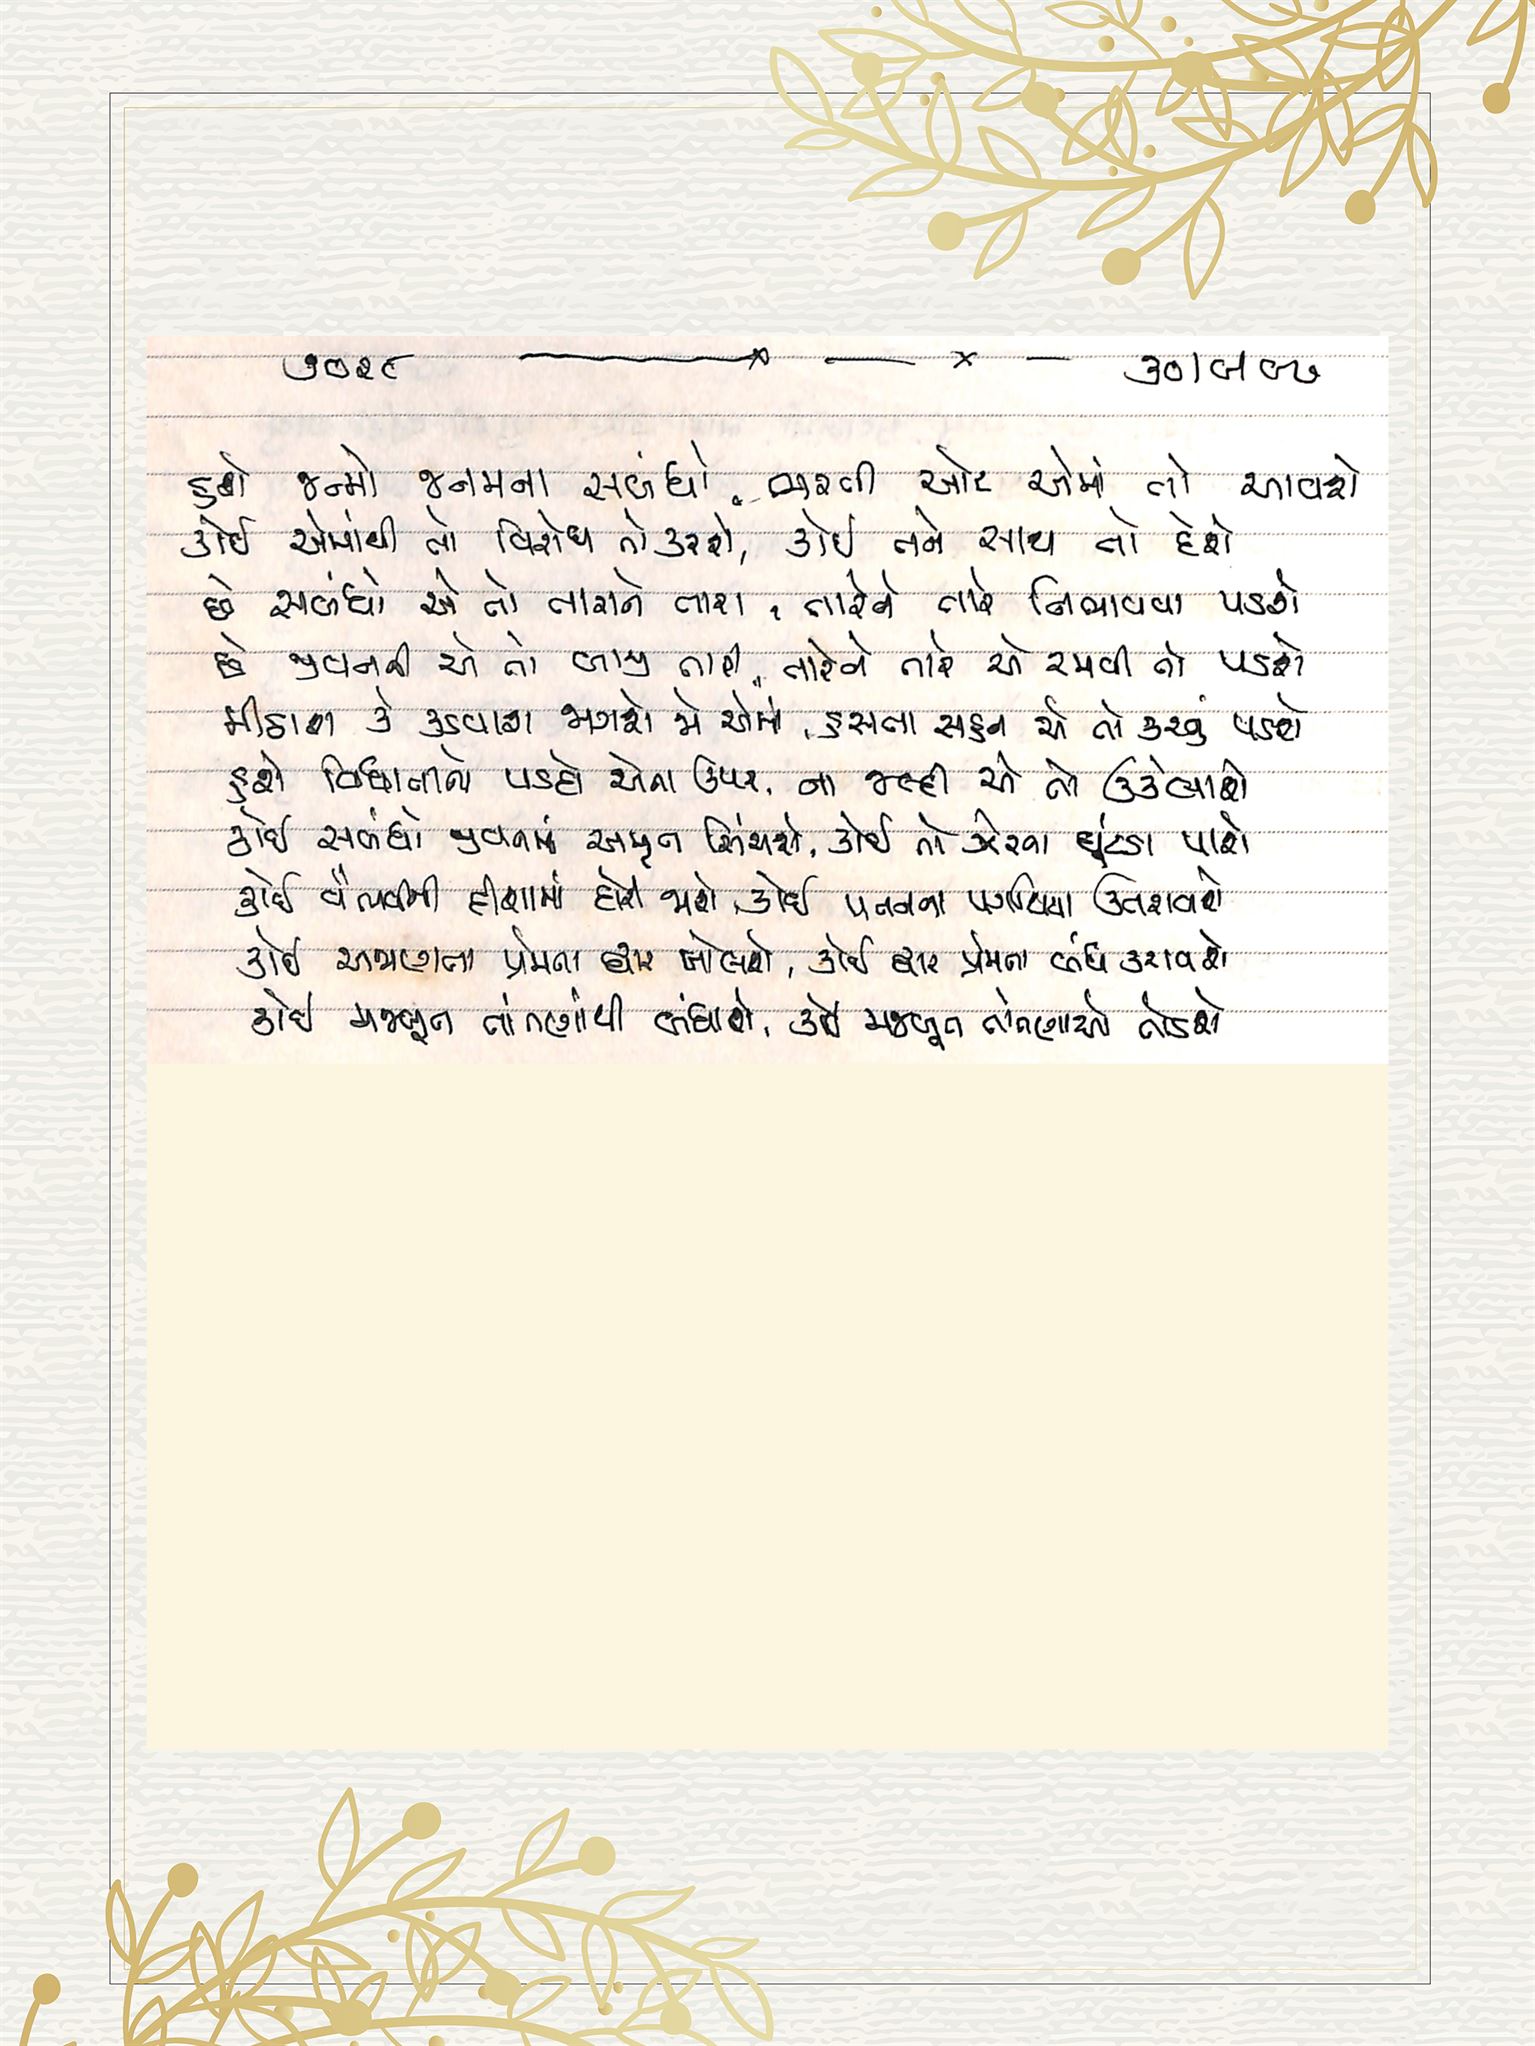 ૭૦૨૯ ૩૦|૯|૯૭
હશે જન્મો જનમના સબંધો, ભરતી ઓટ એમાં તો આવશે
કોઈ એમાંથી તો વિરોધ તો કરશે, કોઈ તને સાથ તો દેશે
છે સબંધો એ તો તારાને તારા, તારેને તારે નિભાવવા પડશે
છે જીવનની એ તો બાજી તારી, તારેને તારે એ રમવી તો પડશે
મીઠાશ કે કડવાશ જાગશે જે એમાં, હસતા સહન એ તો કરવું પડશે
હશે વિધાતાનો પડદો એના ઉપર, ના જલ્દી એ તો ઉકેલાશે
કોઈ સબંધો જીવનમાં અમૃત સિંચશે, કોઈ તો ઝેરના ઘૂંટડા પાશે
કોઈ વૈભવની દીશામાં દોરી જાશે, કોઈ પતનના પગથિયા ઉતરાવશે
કોઈ અજાણતા પ્રેમના દ્વાર ખોલશે, કોઈ દ્વાર પ્રેમના બંધ કરાવશે
કોઈ મજબૂત તાંતણાંથી બંધાશે, કોઈ મજબૂત તાંતણાઓ તોડશે